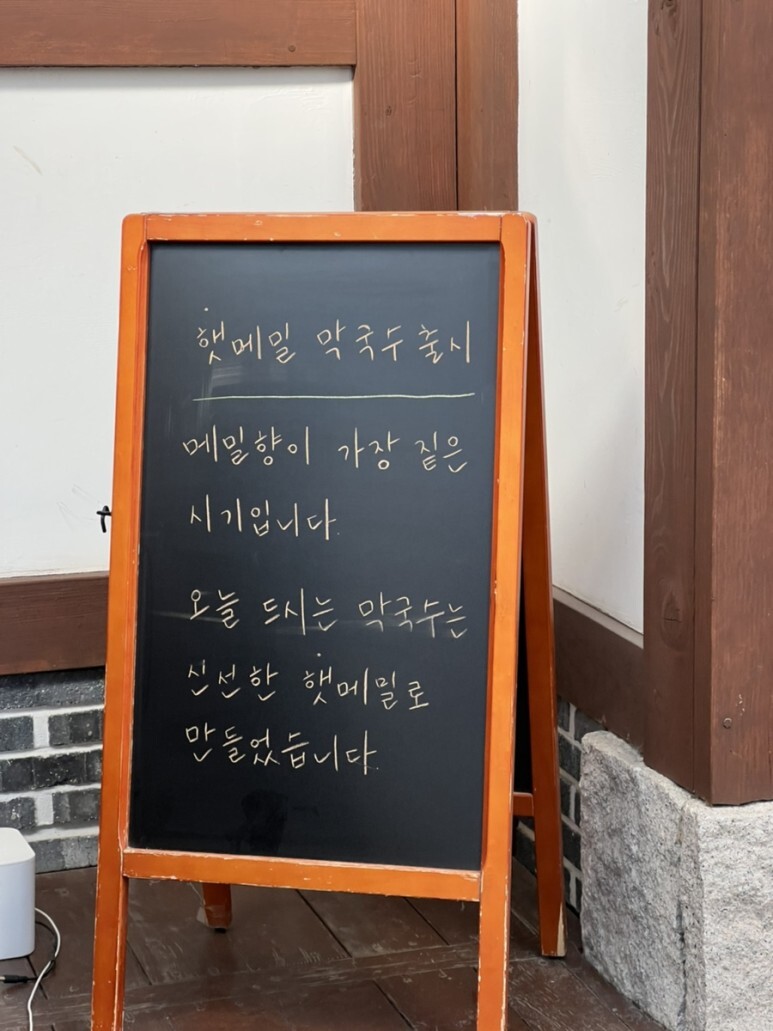 햇메밀 막국수 출시
메밀향이 가장 짙은
시기입니다.
오늘 드시는 막국수는
신선한 햇메밀로
만들었습니다.